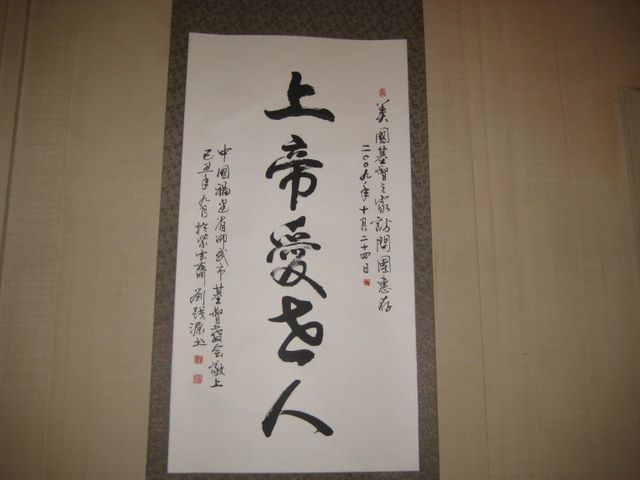 美國基督之家訪問團惠存
二〇〇九年十月二十四日
上帝愛世人
中國福建省邵武市基督教会敬上
己丑年九月於紫雲齋劉源书